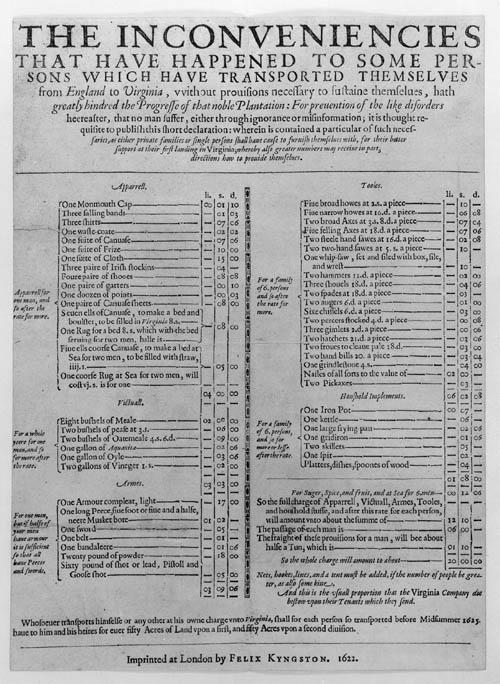 THE INCONVENIENCIES
THAT HAVE HAPPENED TO SOME PER-
SONS WHICH HAVE TRANSPORTED THEMSELVES
from England to Virginia, vvithout prouisions necessary to sustaine themselues, hath
greatly hindred the Progresse of that noble Plantation: For preuention of the like disorders
heereafter, that no man suffer, either through ignorance or misinformation; it is thought re-
quisite to publish this short declaration: wherein is contained a particular of such neces-
saries, as either priuate families or single persons shall haue cause to furnish themselues with, for their better
support at their first landing in Virginia; whereby also greater numbers may receiue in part,
directions how to prouide themselues.
Apparrell.
li. s. d.
Apparrell for one man, and so after the rate for more.
One Monmouth Cap 00 01 10
Three falling bands — 01 03
Three shirts — 07 06
One waste-coate — 02 02
One suite of Canuase — 07 06
One suite of Frize — 10 00
One suite of Cloth — 15 00
Three paire of Irish stockins — 04 —
Foure paire of shooes — 08 08
One paire of garters — 00 10
One doozen of points — 00 03
One paire of Canuase sheets — 08 00
Seuen ells of Canuase, to make a bed and
boulster, to be filled in Virginia 8.s.
One Rug for a bed 8. s. which with the bed
seruing for two men, halfe is — 08 00
Fiue ells coorse Canuase, to make a bed at
Sea for two men, to be filled with straw,
iiij.s. — 05 00
One coorse Rug at Sea for two men, will
cost vj. s. is for one
04 00 00
Victuall.
For a whole yeere for one man, and so for more after the rate.
Eight bushels of Meale 02 00 00
Two bushels of pease at 3.s. — 06 00
Two bushels of Oatemeale 4.s. 6.d. — 09 00
One gallon of Aquauitae — 02 06
One gallon of Oyle — 03 06
Two gallons of Vineger 1. s. — 02 00
03 03 00
Armes.
For one man, but if halfe of your men haue armour it is sufficient so that all haue Peeces and swords.
One Armour compleat, light — 17 00
One long Peece, fiue foot or fiue and a halfe,
neere Musket bore 01 02 —
One sword — 05 —
One belt — 01 —
One bandaleere — 01 06
Twenty pound of powder — 18 00
Sixty pound of shot or lead, Pistoll and
Goose shot — 05 00
03 09 06
Tooles.
li. s. d.
For a family of 6. persons and so after the rate for more.
Fiue broad howes at 2.s. a piece — 10 —
Fiue narrow howes at 16.d. a piece — 06 08
Two broad Axes at 3.s. 8.d. a piece — 07 04
Fiue felling Axes at 18.d. a piece — 07 06
Two steele hand sawes at 16.d. a piece — 02 08
Two two-hand sawes at 5. s. a piece — 10 —
One whip-saw, set and filed with box, file,
and wrest — 10 —
Two hammers 12.d. a piece — 02 00
Three shouels 18.d. a piece — 04 06
Two spades at 18.d. a piece — 03 —
Two augers 6.d. a piece — 01 00
Sixe chissels 6.d. a piece — 03 00
Two percers stocked 4.d. a piece — 00 08
Three gimlets 2.d. a piece — 00 06
Two hatchets 21.d. a piece — 03 06
Two froues to cleaue pale 18.d. — 03 00
Two hand bills 20. a piece — 03 04
One grindlestone 4.s. — 04 00
Nailes of all sorts to the value of 02 00 —
Two Pickaxes — 03 —
06 02 08
Houshold Implements.
For a family of 6. persons, and so for more or lesse after the rate.
One Iron Pot 00 07 —
One kettle — 06 —
One large frying pan — 02 06
One gridiron — 01 06
Two skillets — 05 —
One spit — 02 —
Platters, dishes, spoones of wood — 04 —
01 08 00
For Suger, Spice, and fruit, and at Sea for 6.men 00 12 06
So the full charge of Apparrell, Victuall, Armes, Tooles,
and houshold stuffe, and after this rate for each person,
will amount vnto about the summe of 12 10 —
The passage of each man is 06 00 —
The fraight of these prouisions for a man, will bee about
halfe a Tun, which is 01 10 —
So the whole charge will amount to about 20 00 00
Nets, hookes, lines, and a tent must be added, if the number of people be grea-
ter, as also some kine.
And this is the vsuall proportion that the Virginia Company doe
bestow vpon their Tenants which they send.
Whosoeuer transports himselfe or any other at his owne charge vnto Virginia, shall for each person so transported before Midsummer 1625.
haue to him and his heires for euer fifty Acres of Land vpon a first, and fifty Acres vpon a second diuision.
Imprinted at London by FELIX KYNGSTON. 1622.